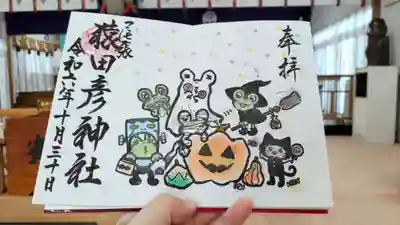 奉拝
猿田彦神社
令和六年十月三十日